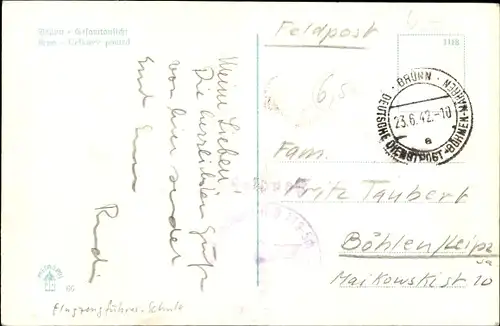 Brünn - Gesamtansicht
Brno - Celkový pohled
Meine Lieben!
Die herzlichsten Grüße
von hier sendet
Euch Euer
Rudi
Flugzeugführer-Schule
Feldpost
1118
BRÜNN
23.6.42.-10
a
DEUTSCHE DIENSTPOST BÖHMEN-MÄHREN
Fam.
Fritz Taubert
Böhlen/Leipz
Maikowskist 10